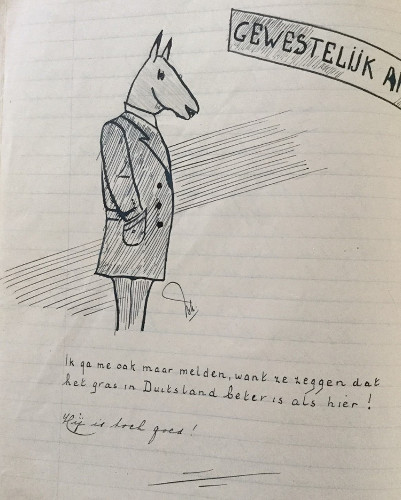 GEWESTELIJK A
Ik ga me ook maar melden, want ze zeggen dat
het gras in Duitsland beter is als hier!
Hij is toch goed!